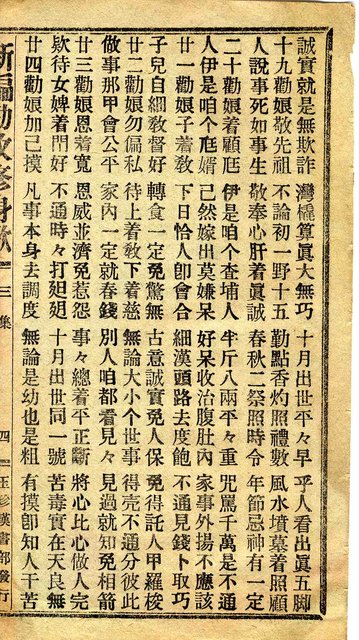 誠實就是無欺詐 灣橇算眞大無巧 十月出世平々早 乎人看出眞五脚
十九勸娘敬先祖 不論初一野十五 勤點香灼照禮數 風水墳墓着照顧
人說事死如事生 敬奉心肝着眞誠 春秋二祭照時令 年節忌神有一定
二十勸娘着顧尫 伊是咱个查埔人 半斤八兩平々重 咒罵千萬是不通
人伊是咱个尫婿 己然嫁出莫嫌呆 好呆收治腹肚內 家事外揚不應該
廿一勸娘子着敎 下日恰人卽會合 細漢頭路去度飽 不通見錢卜取巧
子兒自細敎督好 轉食一定免驚無 古意誠實免人保 免得託人甲羅梭
廿二勸娘勿偏私 待上着敎下着慈 無論大小个世事 得壳不通分彼此
做事那甲會公平 家內一定就春錢 別人咱都看見々 見過就知免相箭
廿三勸娘恩着寬 恩威並濟免惹怨 事々總着平正斷 將心比心做人完
欵待女婢着門好 不通時々打𨑨𨑨 十月出世同一號 苦毒實在天良無
廿四勸娘加己摸 凡事本身去調度 無論是幼也是粗 有摸卽知人干苦
新編勸改修身歌 三集 四 玉珍漢書部發行